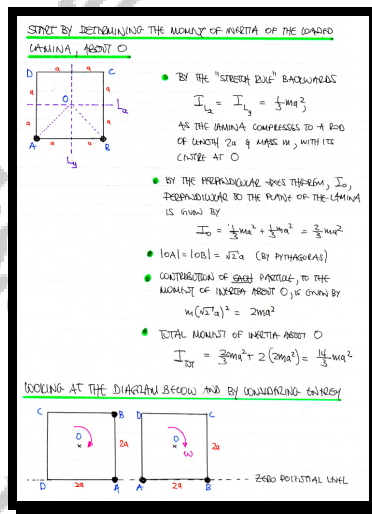 START BY DETERMINING THE MOMENT OF INERTIA OF THE LOADED
LAMINA, ABOUT O
D a a C
a a
O
Lx
a a
A a a B
Ly
BY THE "STRETCH RULE" BACKWARDS
I_Lx = I_Ly = 1/3 ma²,
AS THE LAMINA COMPRESSES TO A ROD
OF LENGTH 2a & MASS m, WITH ITS
CENTRE AT O
BY THE PERPENDICULAR AXES THEOREM, I₀,
PERPENDICULAR TO THE PLANE OF THE LAMINA
IS GIVEN BY
I₀ = 1/3 ma² + 1/3 ma² = 2/3 ma²
|OA| = |OB| = √2 a (BY PYTHAGORAS)
CONTRIBUTION OF EACH PARTICLE, TO THE
MOMENT OF INERTIA ABOUT O, IS GIVEN BY
m(√2 a)² = 2ma²
TOTAL MOMENT OF INERTIA ABOUT O
I_TOT = 2/3 ma² + 2(2ma²) = 14/3 ma²
LOOKING AT THE DIAGRAM BELOW AND BY CONSIDERING ENERGY
C B D C
O 2a O 2a
ω
D 2a A A 2a B
ZERO POTENTIAL LEVEL